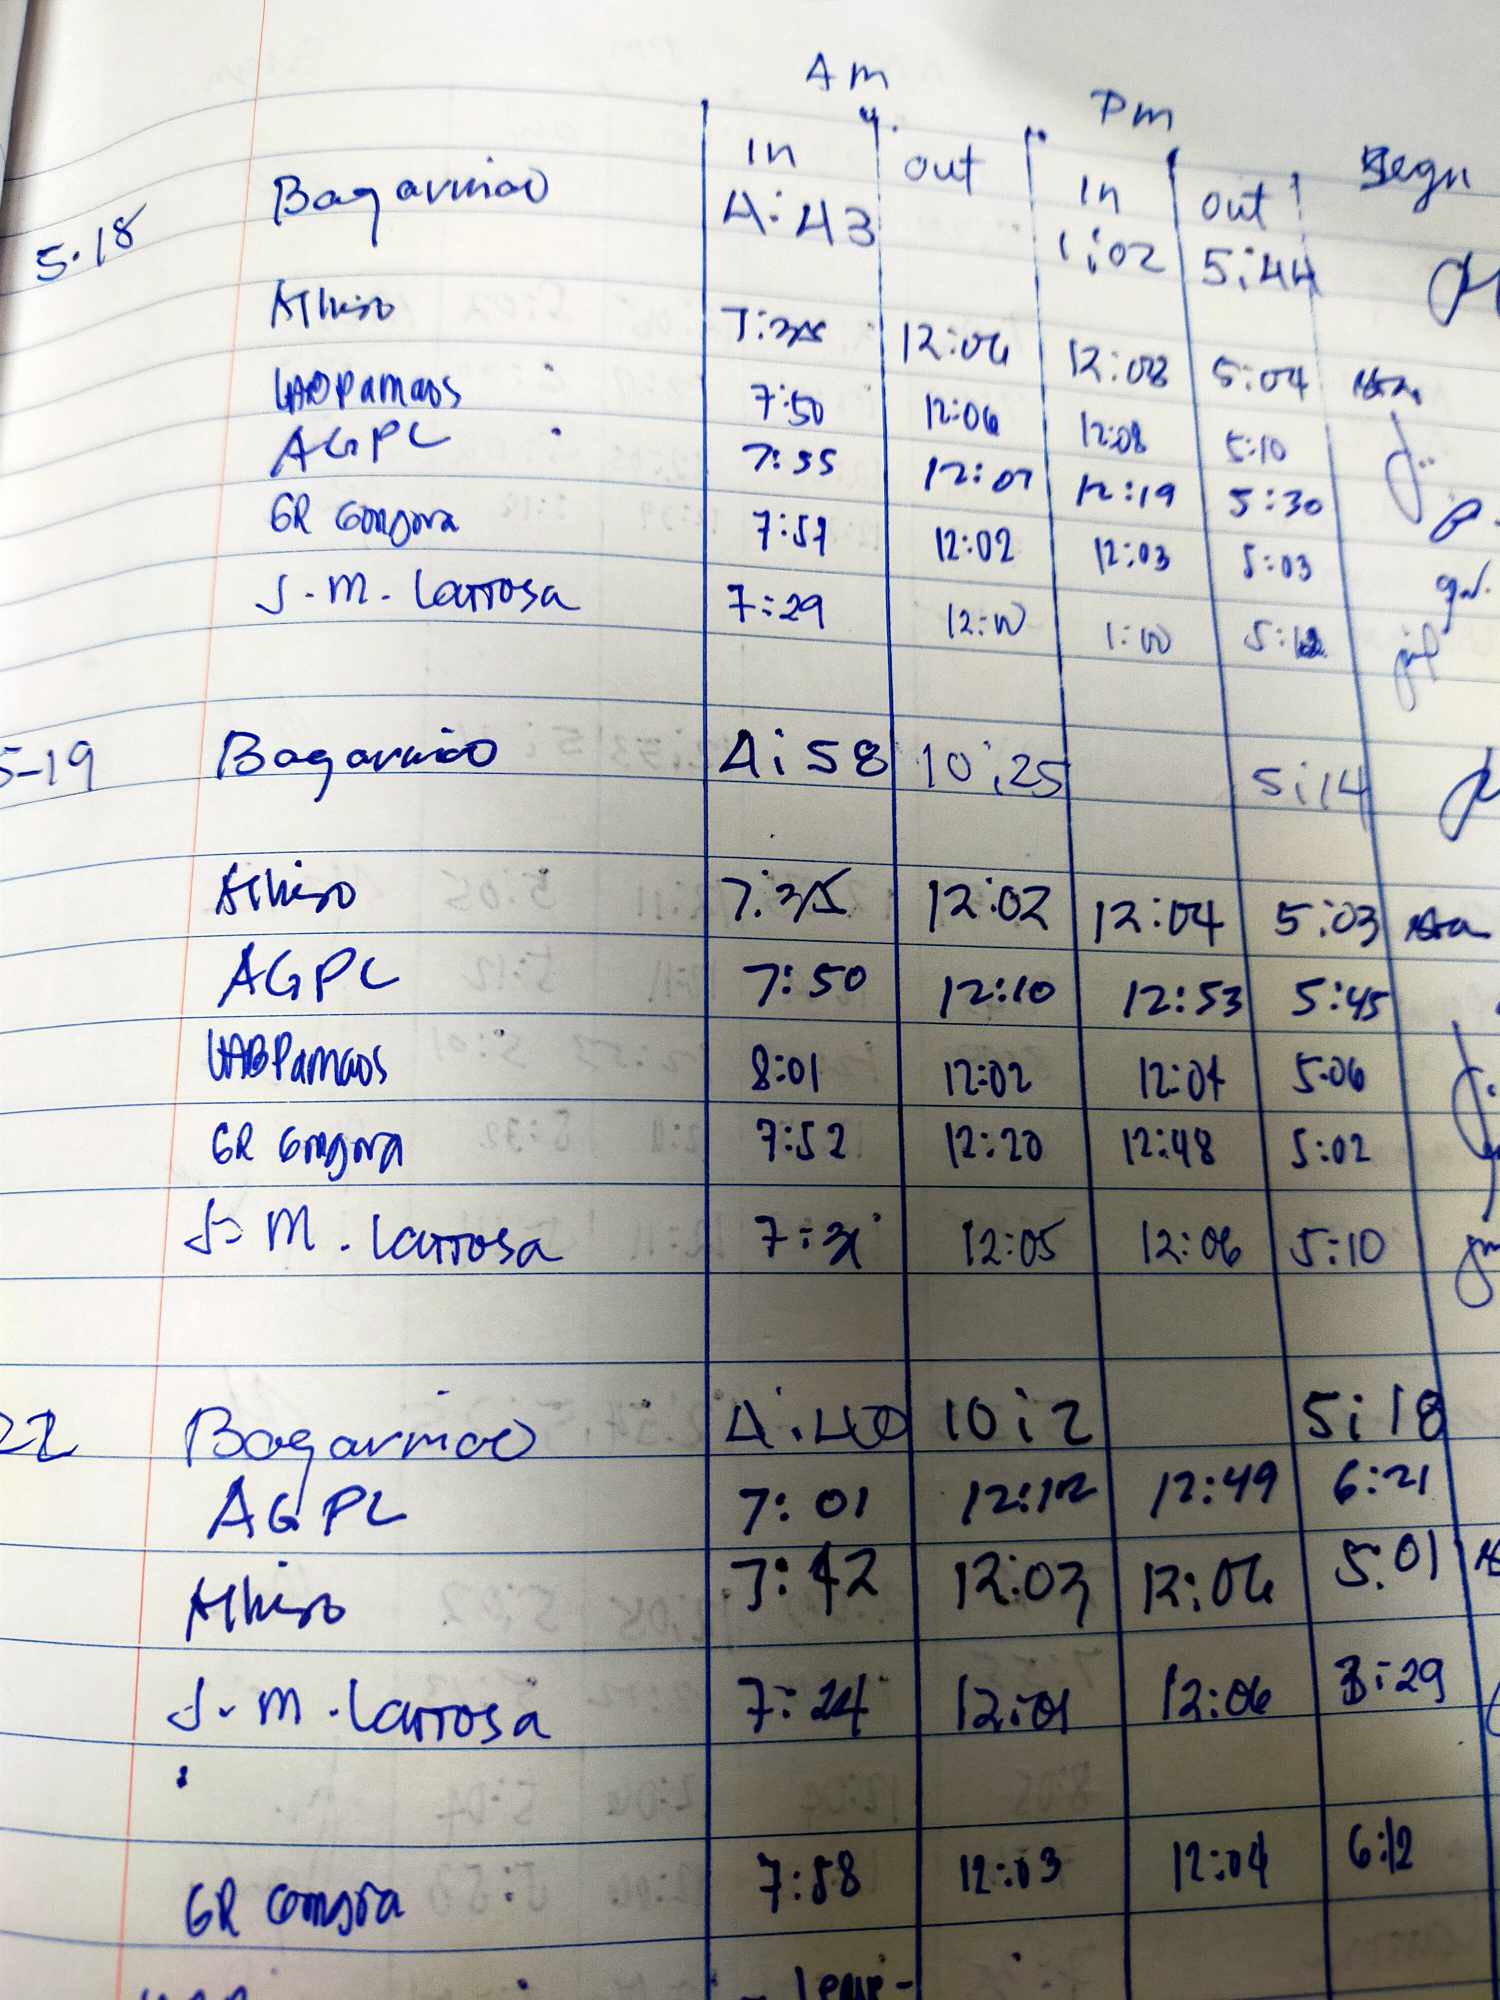 Am Pm
In out In out Segn
5.18 Bagarinao 4:43 1:02 5:44
7:35 12:06 12:08 5:04
UABPamaos 7:50 12:06 12:08 5:10
AGPL 7:55 12:07 12:19 5:30
GR Gongora 7:57 12:02 12:03 5:03
J.M. Larrosa 7:29 12:00 1:00 5:12
5-19 Bagarinao 4:58 10:25 5:14
7:35 12:02 12:04 5:03
AGPL 7:50 12:10 12:53 5:45
UABPamaos 8:01 12:02 12:04 5:06
GR Gongora 7:52 12:20 12:48 5:02
J.M. Larrosa 7:31 12:05 12:06 5:10
22 Bagarinao 4:40 10:2 5:18
AGPL 7:01 12:12 12:49 6:21
7:42 12:03 12:06 5:01
J.M. Larrosa 7:24 12:01 12:06 3:29
GR Gongora 7:58 12:03 12:04 6:12